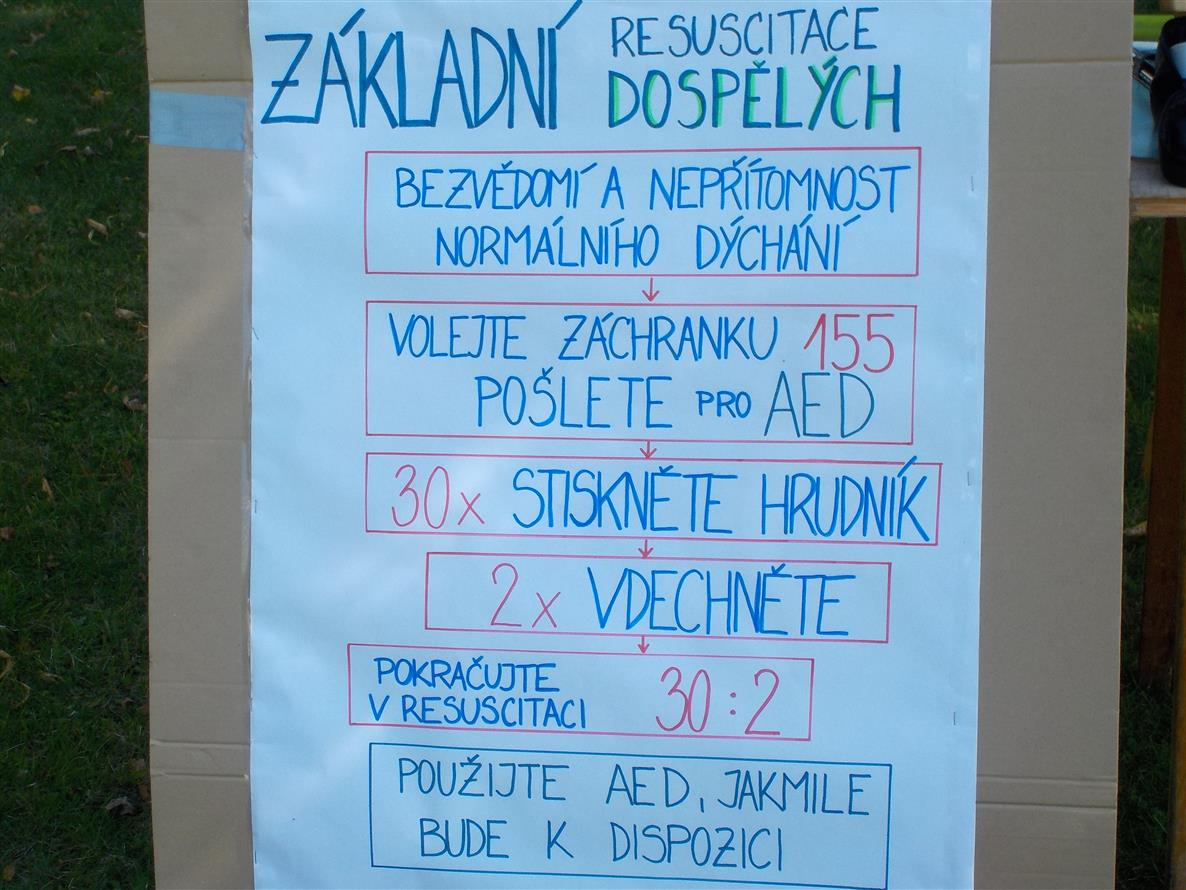 ZÁKLADNÍ RESUSCITACE
DOSPĚLÝCH
BEZVĚDOMÍ A NEPŘÍTOMNOST
NORMÁLNÍHO DÝCHÁNÍ
VOLEJTE ZÁCHRANKU 155
POŠLETE PRO AED
30x STISKNĚTE HRUDNÍK
2x VDECHNĚTE
POKRAČUJTE
V RESUSCITACI 30:2
POUŽIJTE AED, JAKMILE
BUDE K DISPOZICI